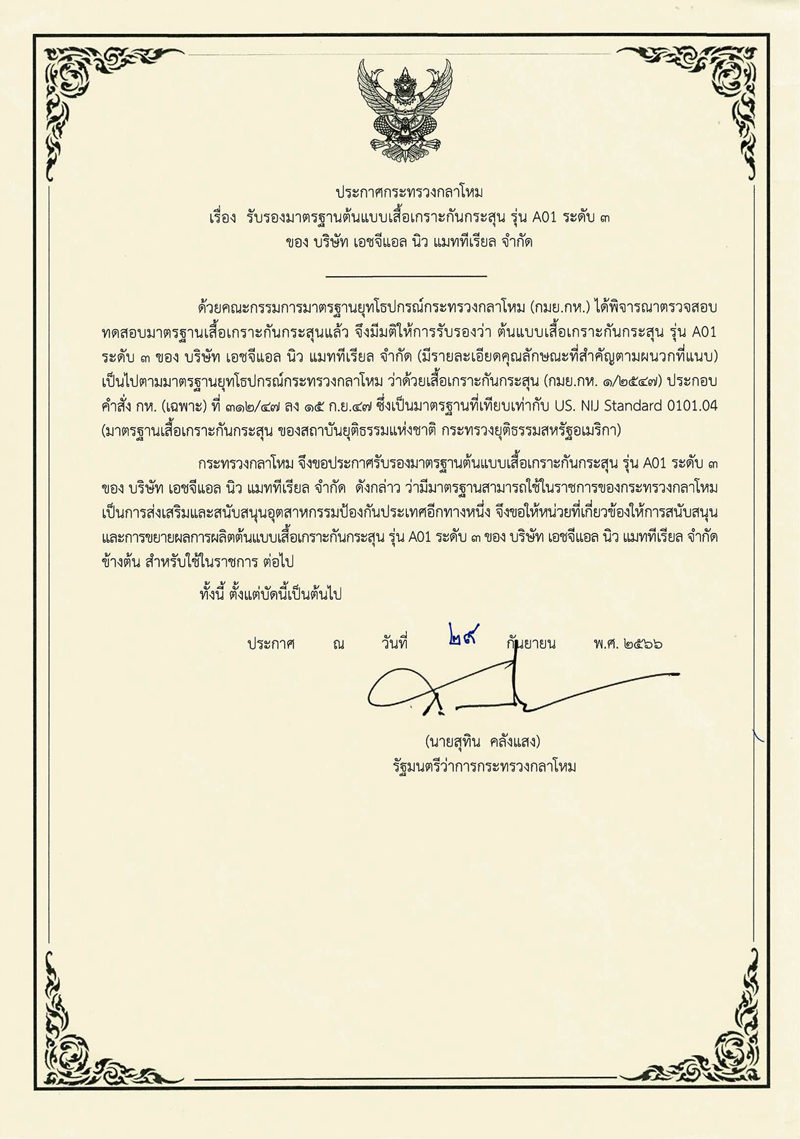 ประกาศกระทรวงกลาโหม
เรื่อง รับรองมาตรฐานต้นแบบเสื้อเกราะกันกระสุน รุ่น A01 ระดับ ๓
ของ บริษัท เอชจีแอล นิว แมททีเรียล จำกัด
ด้วยคณะกรรมการมาตรฐานยุทโธปกรณ์กระทรวงกลาโหม (กมย.กห.) ได้พิจารณาตรวจสอบ
ทดสอบมาตรฐานเสื้อเกราะกันกระสุนแล้ว จึงมีมติให้การรับรองว่า ต้นแบบเสื้อเกราะกันกระสุน รุ่น A01
ระดับ ๓ ของ บริษัท เอชจีแอล นิว แมททีเรียล จำกัด (มีรายละเอียดคุณลักษณะที่สำคัญตามผนวกที่แนบ)
เป็นไปตามมาตรฐานยุทโธปกรณ์กระทรวงกลาโหม ว่าด้วยเสื้อเกราะกันกระสุน (กมย.กห. ๑/๒๕๔๗) ประกอบ
คำสั่ง กห. (เฉพาะ) ที่ ๓๑๒/๔๗ ลง ๑๕ ก.ย.๔๗ ซึ่งเป็นมาตรฐานที่เทียบเท่ากับ US. NIJ Standard 0101.04
(มาตรฐานเสื้อเกราะกันกระสุน ของสถาบันยุติธรรมแห่งชาติ กระทรวงยุติธรรมสหรัฐอเมริกา)
กระทรวงกลาโหม จึงขอประกาศรับรองมาตรฐานต้นแบบเสื้อเกราะกันกระสุน รุ่น A01 ระดับ ๓
ของ บริษัท เอชจีแอล นิว แมททีเรียล จำกัด ดังกล่าว ว่ามีมาตรฐานสามารถใช้ในราชการของกระทรวงกลาโหม
เป็นการส่งเสริมและสนับสนุนอุตสาหกรรมป้องกันประเทศอีกทางหนึ่ง จึงขอให้หน่วยที่เกี่ยวข้องให้การสนับสนุน
และการขยายผลการผลิตต้นแบบเสื้อเกราะกันกระสุน รุ่น A01 ระดับ ๓ ของ บริษัท เอชจีแอล นิว แมททีเรียล จำกัด
ข้างต้น สำหรับใช้ในราชการ ต่อไป
ทั้งนี้ ตั้งแต่บัดนี้เป็นต้นไป
ประกาศ ณ วันที่ ๒๙ กันยายน พ.ศ. ๒๕๖๖
(นายสุทิน คลังแสง)
รัฐมนตรีว่าการกระทรวงกลาโหม